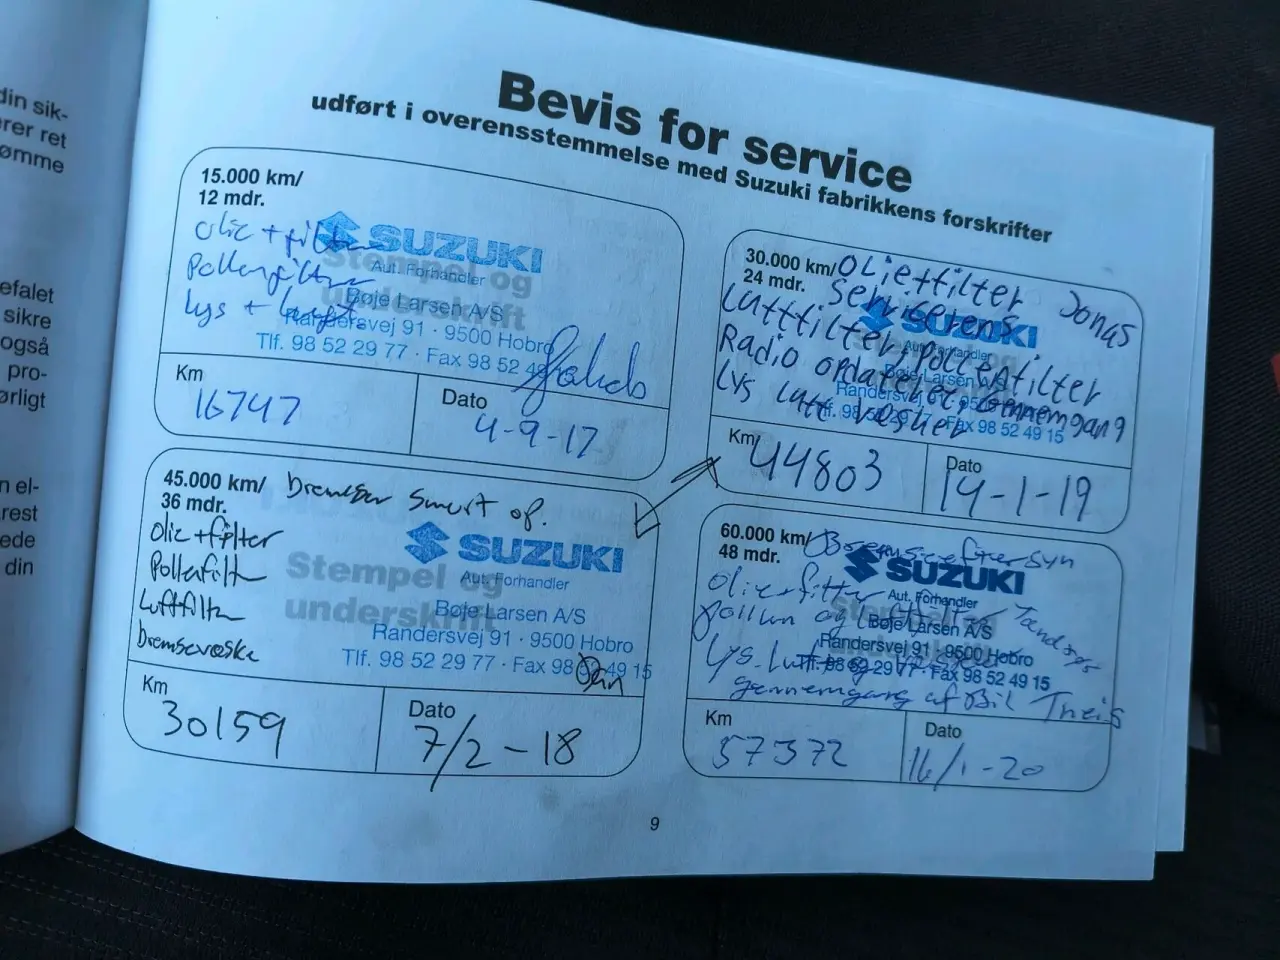 din sik-
rer ret
ømme
efalet
sikre
også
pro-
ørligt
n el-
rest
ede
din
Bevis for service
udført i overensstemmelse med Suzuki fabrikkens forskrifter
15.000 km/
12 mdr.
Olie + filter
Pollenfilter
Lys +
Stempel og
underskrift
SUZUKI
Aut. Forhandler
Bøje Larsen A/S
Randersvej 91 · 9500 Hobro
Tlf. 98 52 29 77 · Fax 98 52 49
Jakob
Km
16747
Dato
4-9-17
30.000 km/
24 mdr.
Olie+filter Jonas
Servicerens
Luftfilter, Pollenfilter
Radio opdateret, Gennemgang
Lys luft væsker
SUZUKI
Aut. Forhandler
Bøje Larsen A/S
Randersvej 91 · 9500
Tlf. 98 52 29 77 · Fax 98 52 49 15
Km
44803
Dato
14-1-19
45.000 km/
36 mdr.
bremser smurt op.
olie+filter
Pollenfilt
Luftfilte
bremsevæske
Stempel og
underskrift
SUZUKI
Aut. Forhandler
Bøje Larsen A/S
Randersvej 91 · 9500 Hobro
Tlf. 98 52 29 77 · Fax 98 52 49 15
Km
30159
Dato
7/2 - 18
60.000 km/
48 mdr.
Bremseeftersyn
Olie+filter
pollen og luftfilter Tændrør
Lys. Luft og
gennemgang af Bil
SUZUKI
Aut. Forhandler
Bøje Larsen A/S
Randersvej 91 · 9500 Hobro
Tlf. 98 52 29 77 · Fax 98 52 49 15
Km
57372
Dato
16/1-20
9